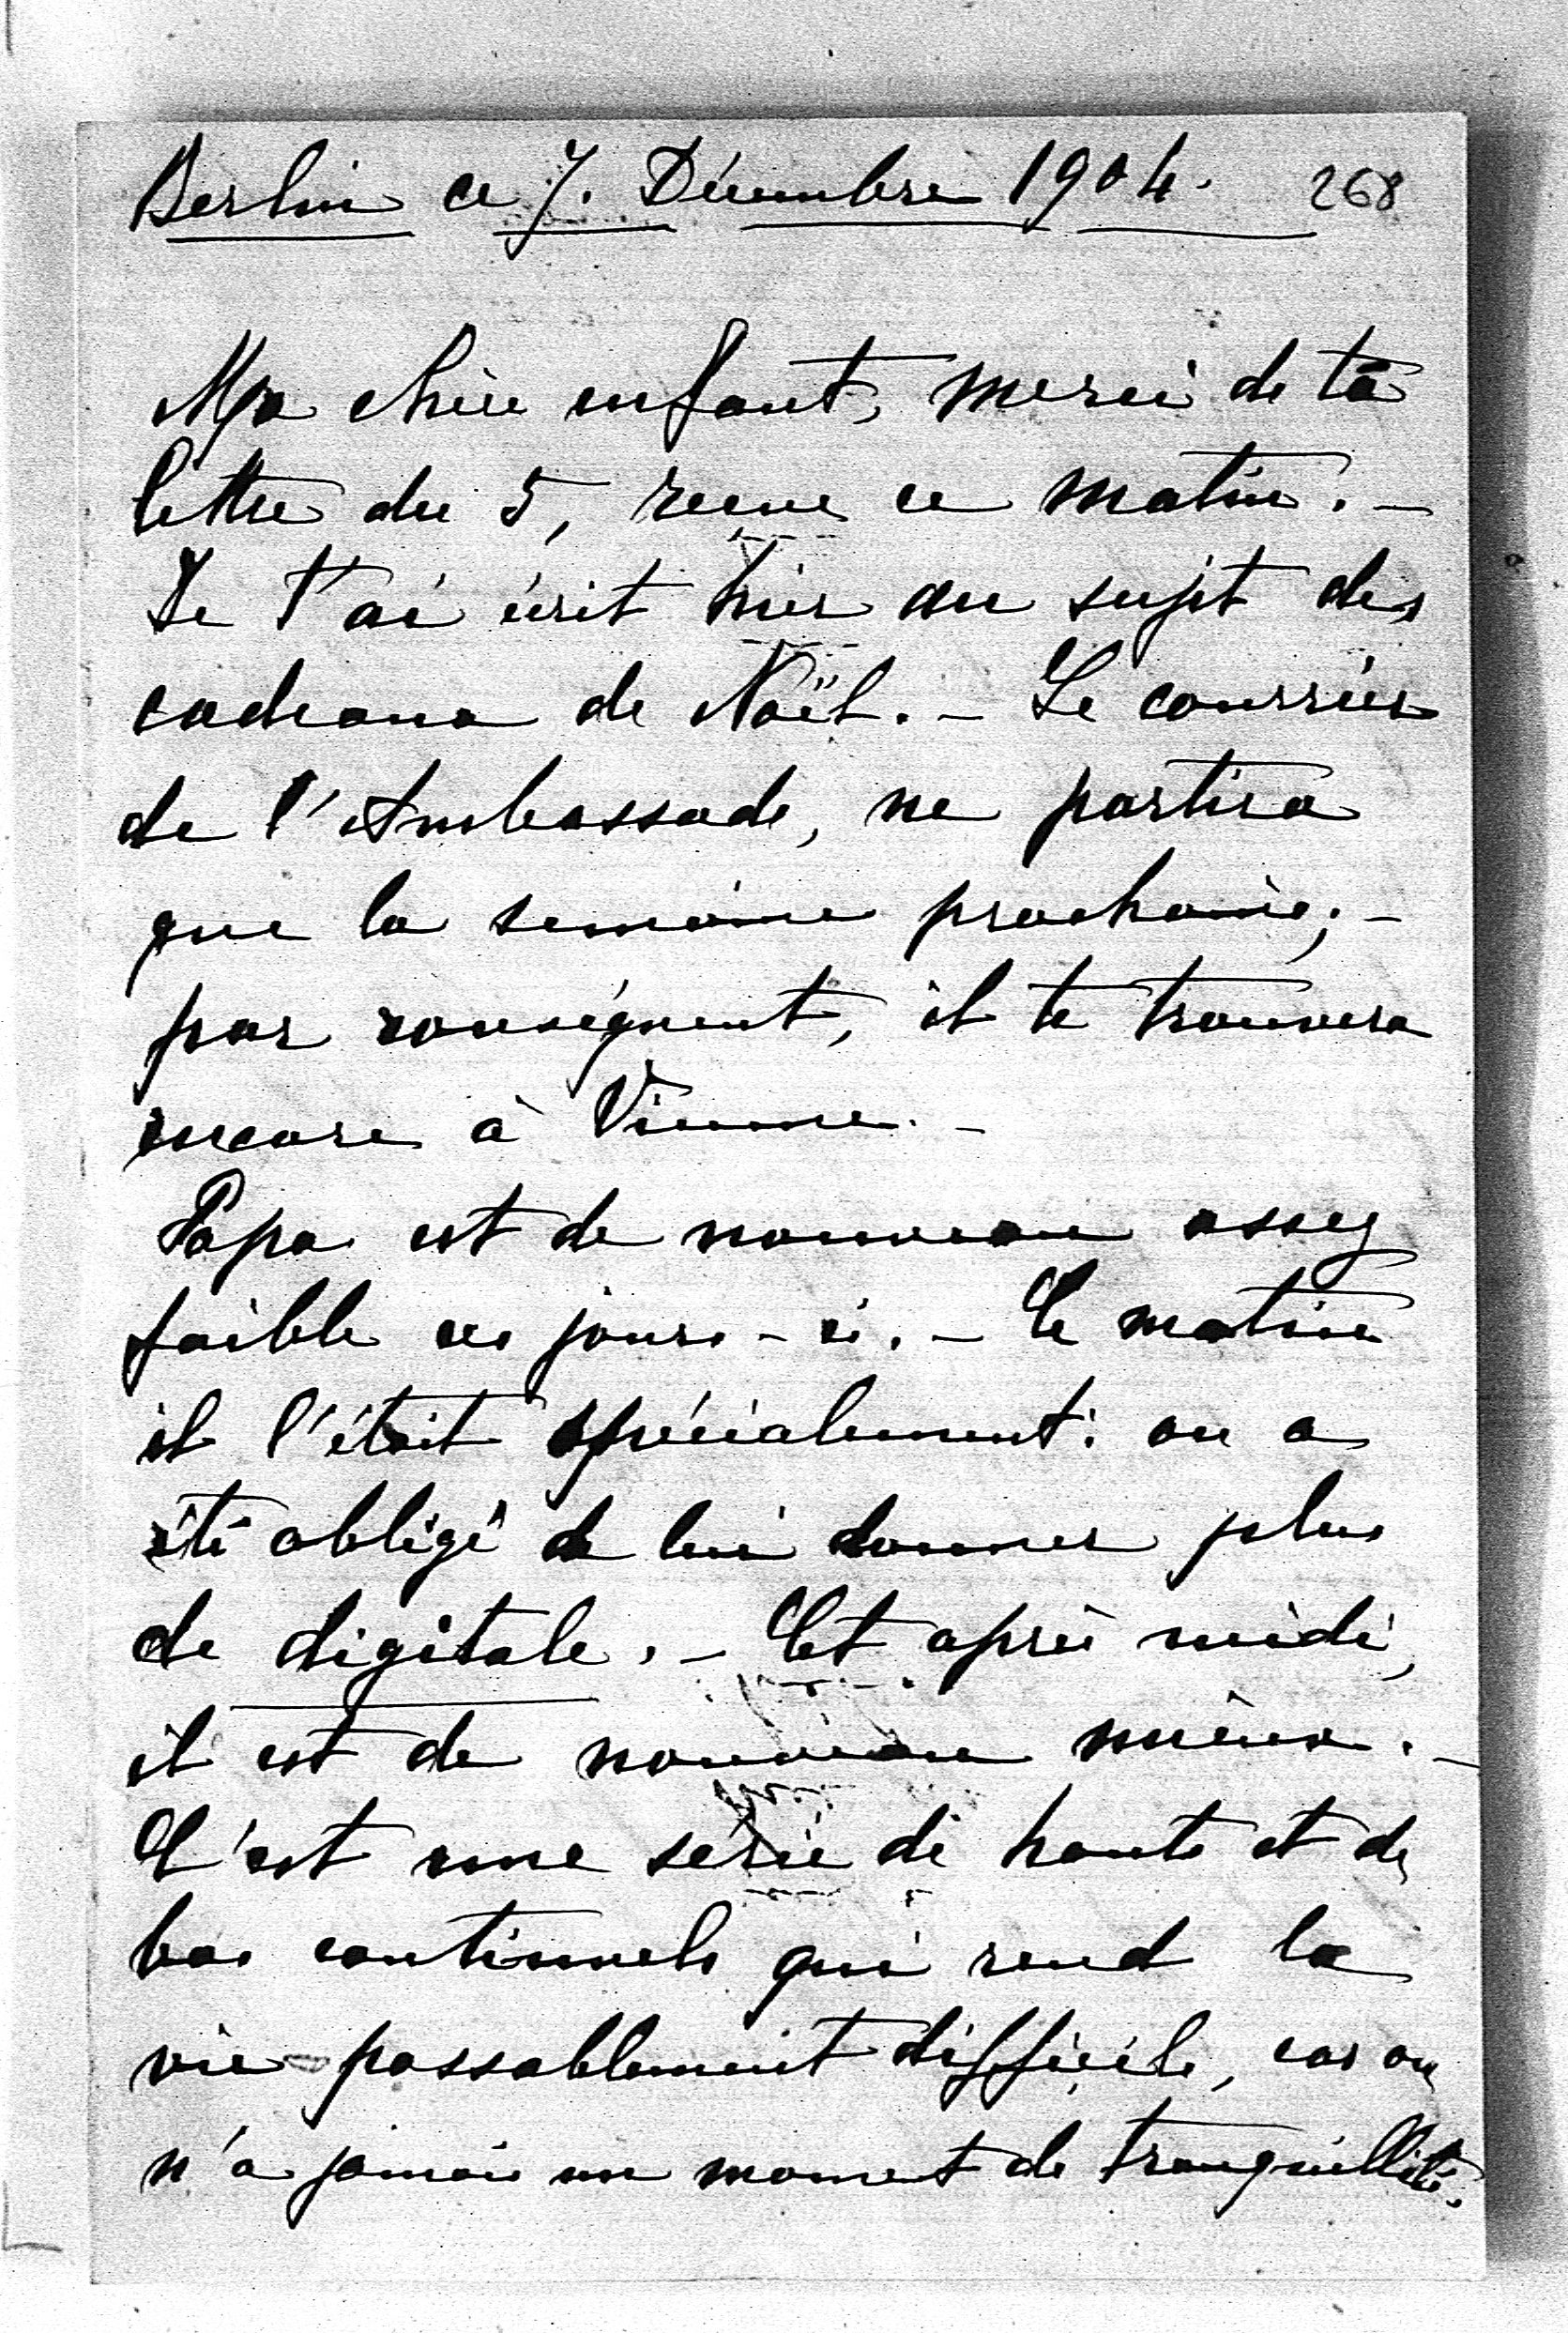 Berlin ce 7. Décembre 1904. 268
Ma chère enfant, merci de ta
lettre du 5, recue ce matin. -
Je t'ai écrit hier au sujet des
cadeaux de Noël. - Le courrier
de l'Ambassade, ne partira
que la semaine prochaine; -
par conséquent, il te trouvera
encore à Vienne. -
Papa est de nouveau assez
faible ces jours-ci. - Ce matin
il l'était spécialement: on a
été obligé de lui donner plus
de digitale. - Cet après midi,
il est de nouveau mieux. -
C'est une série de hauts et de
bas continuels qui rend la
vie passablement difficile, car on
n'a jamais un moment de tranquillité.